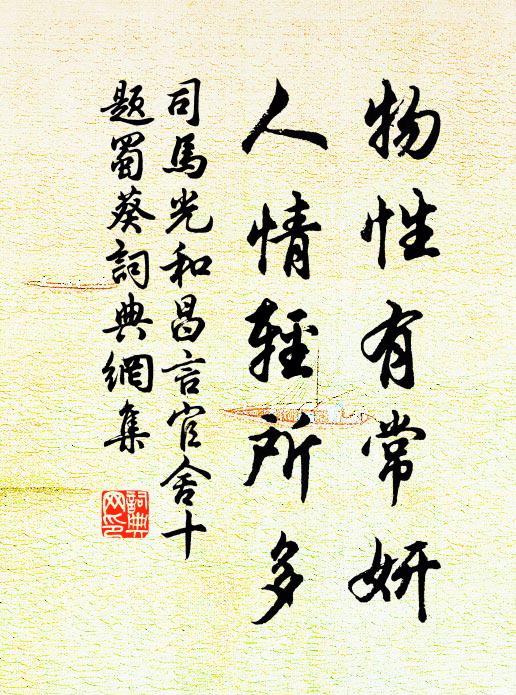 物性有常妍
人情輕所多
司馬光和昌言官舍十
題蜀葵詞典網集
詞典
网印